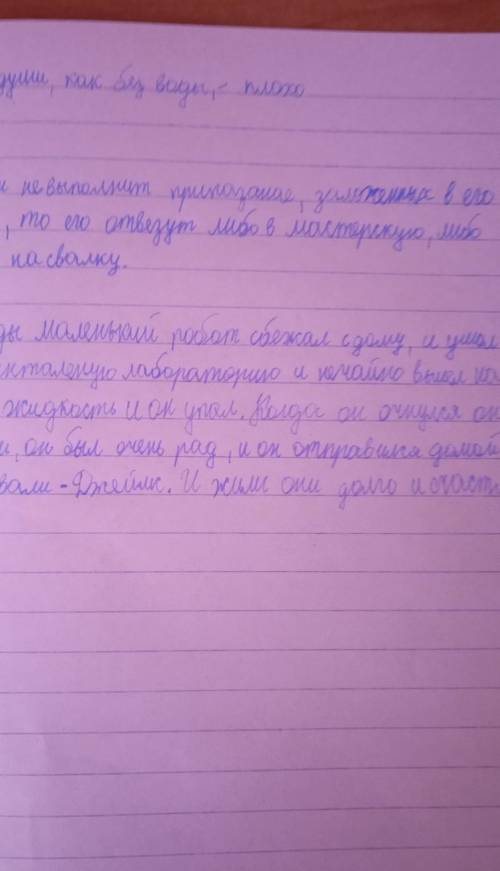 души, как без воды, - плохо
и невыполнит приказание, заложенных в его
, то его отвезут либо в мастерскую, либо
на свалку.
ды маленький робот сбежал сдому, и ушол
лабораторию и нечайно вылел на
жидкость и он упал. Когда он очнулся он
и, он был очень рад, и он отправился домой
вали - Джеймс. И жили они долго и счаст